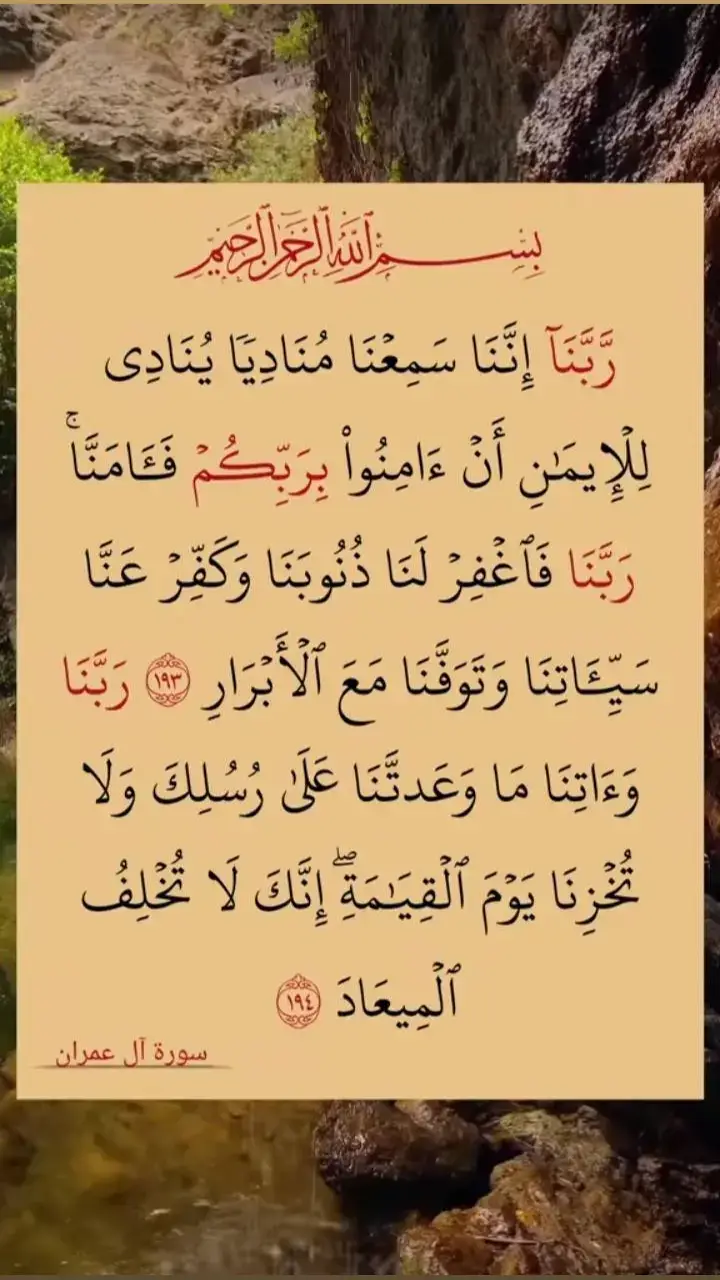 بِسْمِ ٱللَّهِ ٱلرَّحْمَٰنِ ٱلرَّحِيمِ
رَّبَّنَآ إِنَّنَا سَمِعْنَا مُنَادِيًا يُنَادِى
لِلْإِيمَٰنِ أَنْ ءَامِنُوا۟ بِرَبِّكُمْ فَـَٔامَنَّا ۚ
رَبَّنَا فَٱغْفِرْ لَنَا ذُنُوبَنَا وَكَفِّرْ عَنَّا
سَيِّـَٔاتِنَا وَتَوَفَّنَا مَعَ ٱلْأَبْرَارِ ١٩٣ رَبَّنَا
وَءَاتِنَا مَا وَعَدتَّنَا عَلَىٰ رُسُلِكَ وَلَا
تُخْزِنَا يَوْمَ ٱلْقِيَٰمَةِ ۖ إِنَّكَ لَا تُخْلِفُ
ٱلْمِيعَادَ ١٩٤
سورة آل عمران